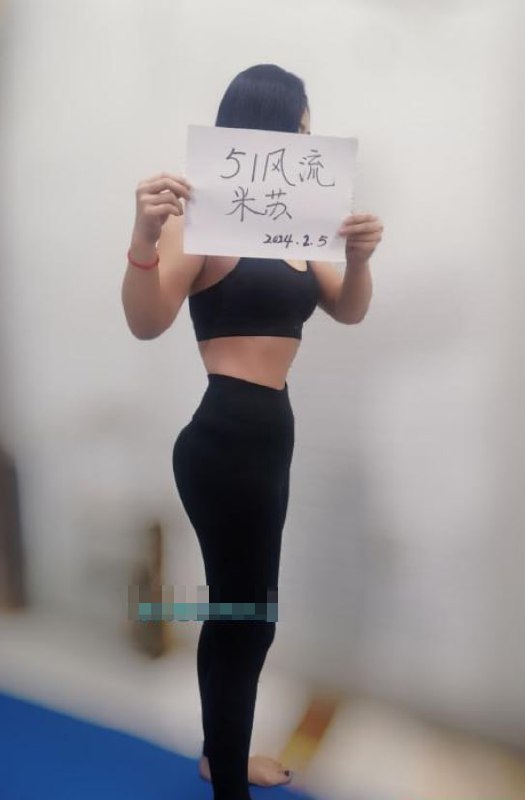 51风流
米苏
2024.2.5